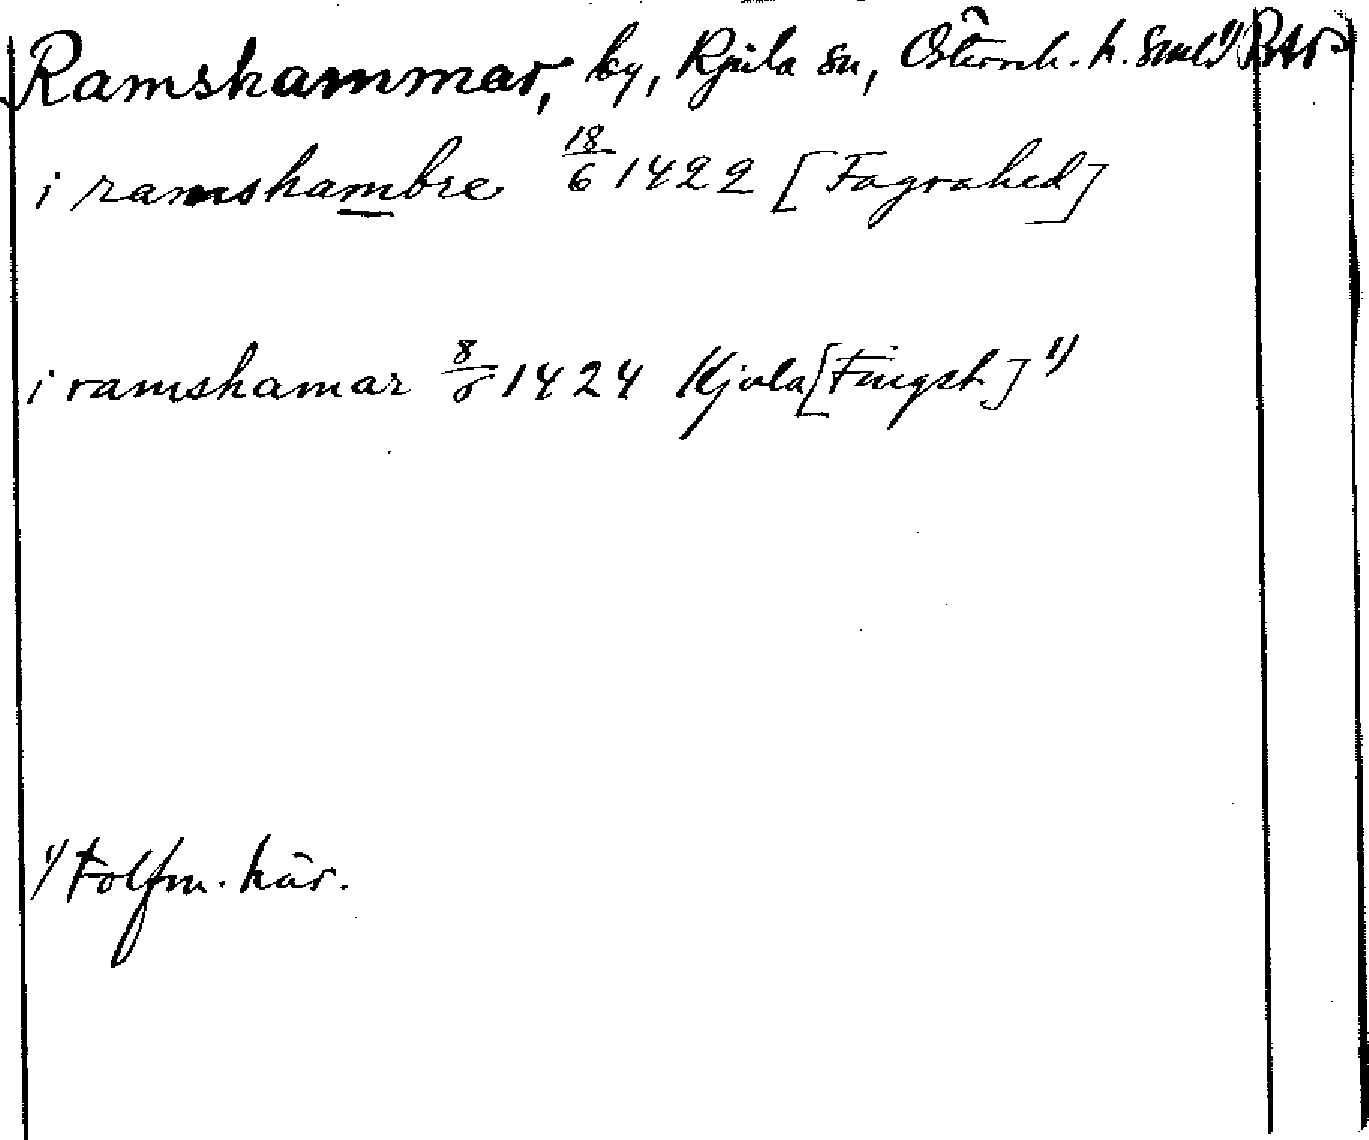 Ramshammar, by, Kjula sn, Österrek. h. Smld 1) Btr
i ramshambre 18/6 1422 [Fagrahed]
i ramshamar 8/8 1424 Kjvla [Tingst.] 1)
1) Folfm. här.